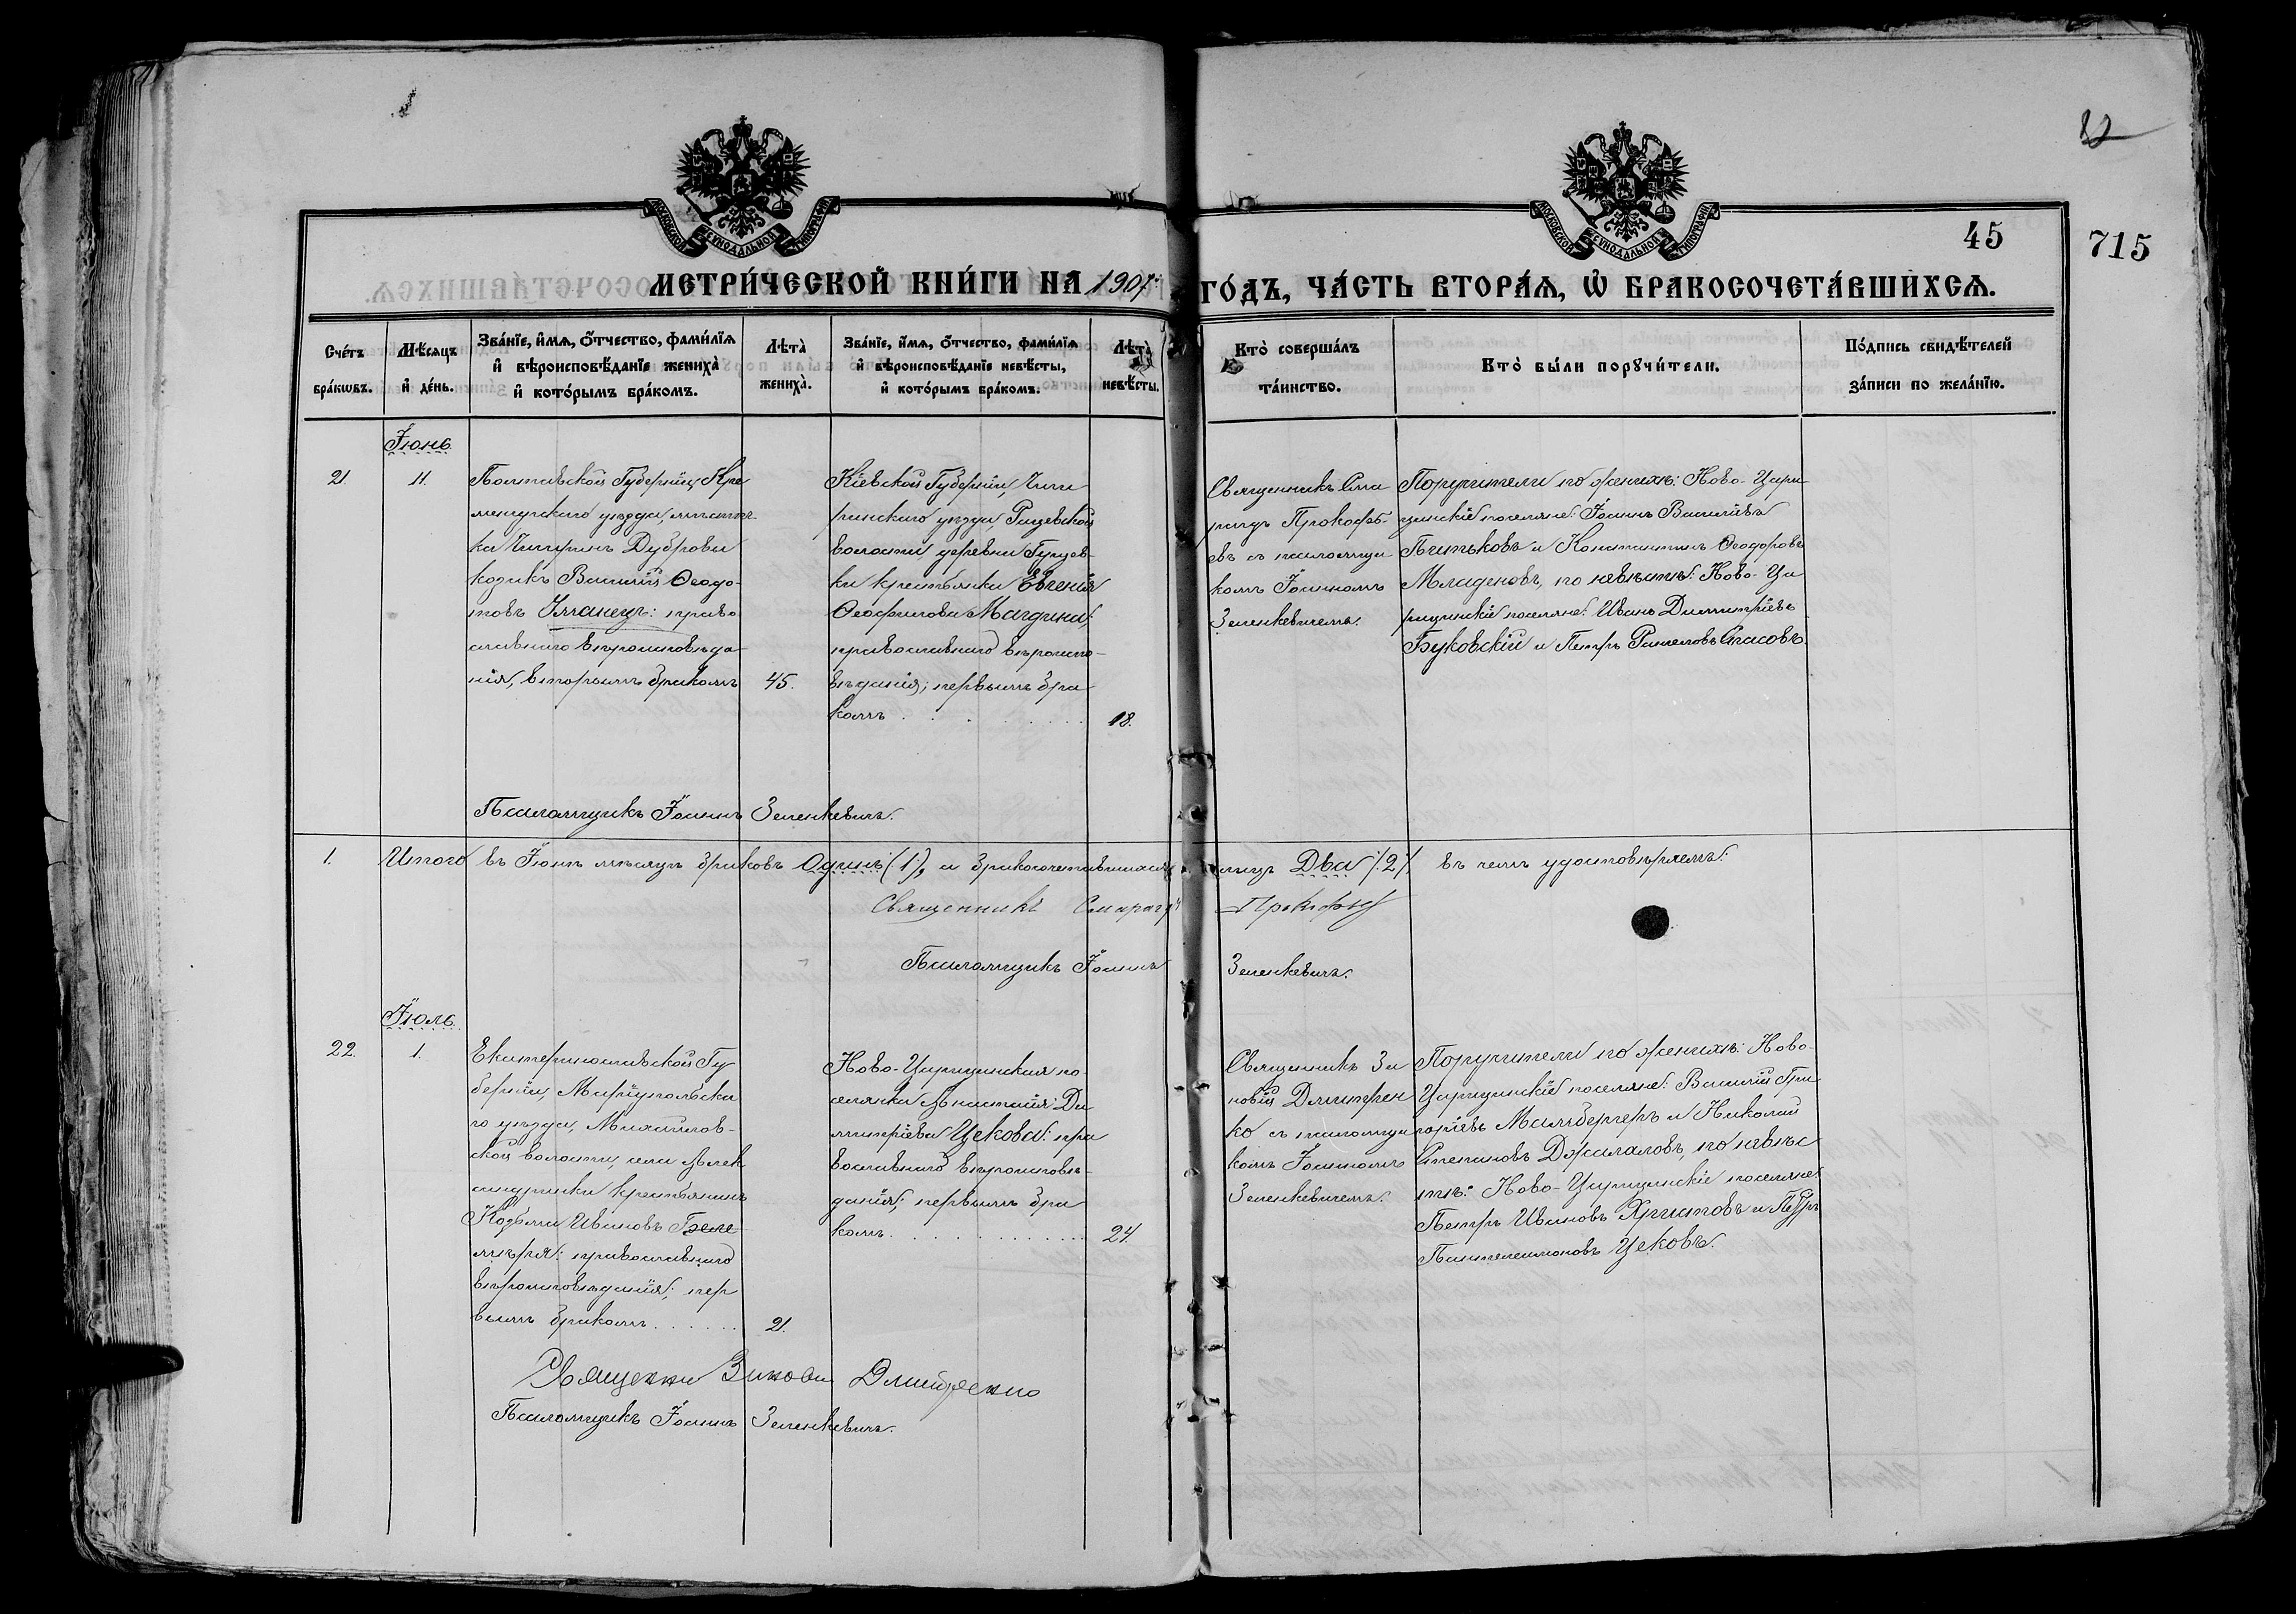 82
МОСКОВСКОЙ СУНОДАЛЬНОЙ ТИПОГРАФІИ
МОСКОВСКОЙ СУНОДАЛЬНОЙ ТИПОГРАФІИ
45
715
МЕТРИ́ЧЕСКОЙ КНИ́ГИ НА 1907. ГО́ДЪ, ЧА́СТЬ ВТОРА́Я, Ѡ҆ БРАКОСОЧЕТА́ВШИХСѦ.
Сче́тъ бра́кѡвъ.
Мѣ́сяцъ и҆ де́нь.
Зва́нїе, и҆́мѧ, ѻ҆́тчество, фами́лїя
и҆ вѣроисповѣ́данїе жениха̀
и҆ кото́рымъ бра́комъ.
Лѣта̀ жениха̀.
Зва́нїе, и҆́мѧ, ѻ҆́тчество, фами́лїя
и҆ вѣроисповѣ́данїе невѣ́сты,
и҆ кото́рымъ бра́комъ.
Лѣта̀ невѣ́сты.
Кто̀ соверша́лъ
та́инство.
Кто̀ бы́ли порꙋчи́тели.
По́дпись свидѣ́телей
за́писи по жела́нїю.
Іюнь
21.
11.
Полтавской Губерніи, Кре
менчугскаго уѣзда, мѣстеч
ка Чигринъ Дубровы
козакъ Василій Ѳеодо-
товъ Улланецъ: право
славнаго вѣроисповѣда
нія, вторымъ бракомъ
45.
Кіевской Губерніи, Чиги
ринскаго уѣзда,
волости, деревни
ки крестьянка Евгенія
Ѳеофилова Магдина:
православнаго вѣроиспо-
вѣданія; первымъ бра
комъ
18.
Священникъ Сма
рагдъ Прокофь-
евъ съ псаломщи
комъ Іоанномъ
Зеленкевичемъ.
Поручители по женихѣ: Ново-Цари
цынскіе поселяне: Іоаннъ Василіевъ
Питьковъ и Константинъ Ѳеодоровъ
Младеновъ, по невѣстѣ: Ново-Ца
рицынскіе поселяне: Иванъ Димитріевъ
Буковскій и Петръ Спасовъ.
Псаломщикъ Іоаннъ Зеленкевичъ.
1. Итого въ Іюнѣ мѣсяцѣ браковъ Одинъ (1), а бракосочетавшихся лицъ Два /2/. въ чемъ удостовѣряемъ:
Священникъ Смарагдъ Прокофьев
Псаломщикъ Іоаннъ Зеленкевичъ.
Іюль
22.
1.
Екатеринославской Гу
берніи, Маріупольска
го уѣзда, Михайлов-
ской волости, села Алек
сандринки крестьянинъ
Козьма Ивановъ
православнаго
вѣроисповѣданія; пер
вымъ бракомъ
21.
Ново-Царицынская по
селянка Анастасія Ди
митріева Цекова: пра
вославнаго вѣроисповѣ-
данія; первымъ бра
комъ
24.
Священникъ Зи
новій Дмитрен
ко съ псаломщи
комъ Іоанномъ
Зеленкевичемъ.
Поручители по женихѣ: Ново-
Царицынскіе поселяне: Василій Гри
горіевъ Мальбергеръ и Николай
Степановъ Джалаловъ, по невѣс
тѣ: Ново-Царицынскіе поселяне:
Петръ Ивановъ Христовъ и Петръ
Пантелеимоновъ Цековъ.
Священни Зинови Дмитренко
Псаломщикъ Іоаннъ Зеленкевичъ.